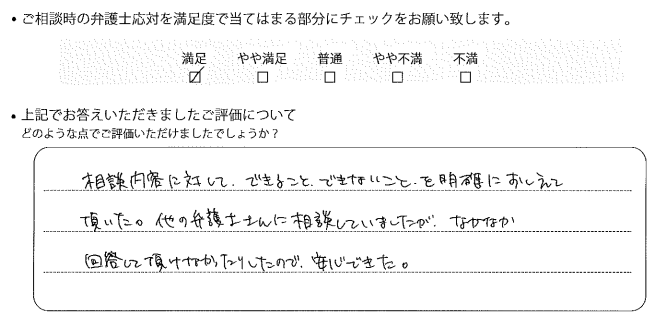 ・ご相談時の弁護士応対を満足度で当てはまる部分にチェックをお願い致します。
満足 やや満足 普通 やや不満 不満
☑ □ □ □ □
・上記でお答えいただきましたご評価について
どのような点でご評価いただけましたでしょうか？
相談内容に対して、できること、できないこと、を明確におしえて
頂いた。他の弁護士さんに相談していましたが、なかなか
回答して頂けなかったりしたので、安心できた。